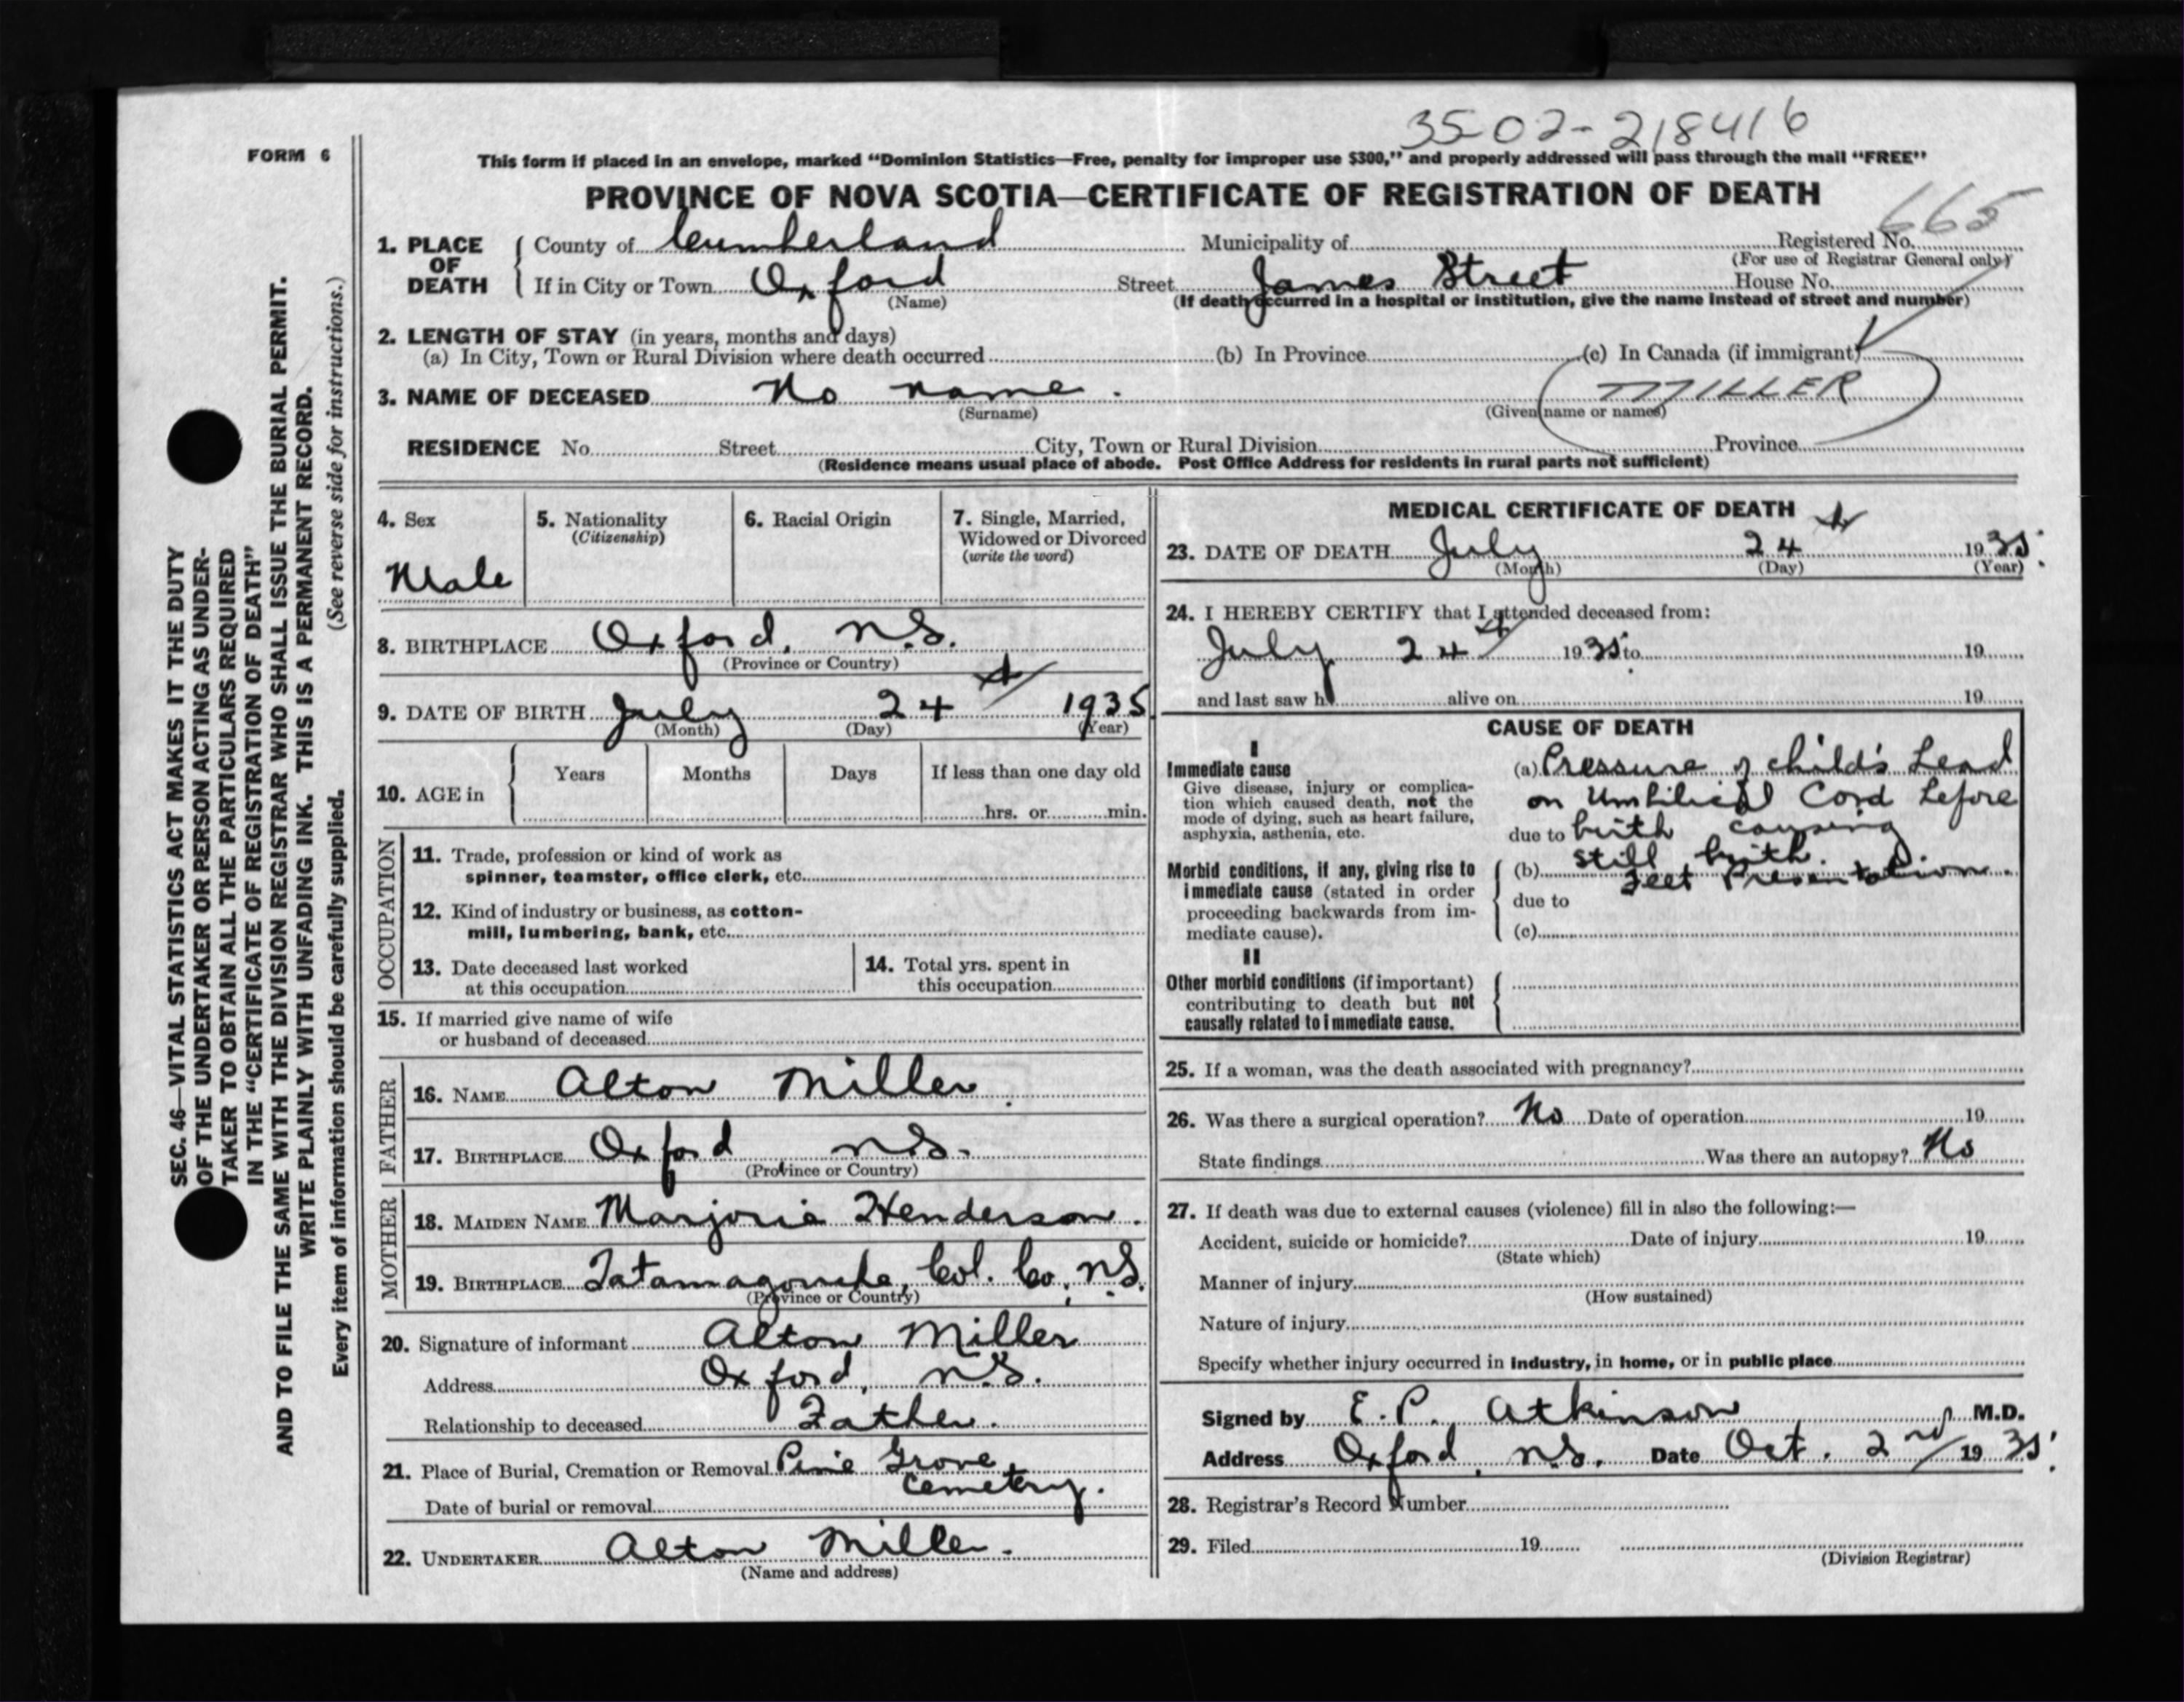 3502-218416
FORM 6
This form if placed in an envelope, marked “Dominion Statistics—Free, penalty for improper use $300,” and properly addressed will pass through the mail “FREE”
PROVINCE OF NOVA SCOTIA—CERTIFICATE OF REGISTRATION OF DEATH
665
1. PLACE OF DEATH { County of Cumberland Municipality of Registered No.
(For use of Registrar General only)
If in City or Town Oxford Street James Street House No.
(Name) (If death occurred in a hospital or institution, give the name instead of street and number)
2. LENGTH OF STAY (in years, months and days)
(a) In City, Town or Rural Division where death occurred (b) In Province (c) In Canada (if immigrant)
3. NAME OF DECEASED No name. MILLER
(Surname) (Given name or names)
RESIDENCE No. Street City, Town or Rural Division Province
(Residence means usual place of abode. Post Office Address for residents in rural parts not sufficient)
4. Sex
Male
5. Nationality
(Citizenship)
6. Racial Origin
7. Single, Married,
Widowed or Divorced
(write the word)
8. BIRTHPLACE Oxford, N.S.
(Province or Country)
9. DATE OF BIRTH July 24th 1935
(Month) (Day) (Year)
10. AGE in { Years Months Days If less than one day old
hrs. or min.
OCCUPATION
11. Trade, profession or kind of work as
spinner, teamster, office clerk, etc.
12. Kind of industry or business, as cotton-
mill, lumbering, bank, etc.
13. Date deceased last worked
at this occupation
14. Total yrs. spent in
this occupation
15. If married give name of wife
or husband of deceased
FATHER
16. NAME Alton Miller.
17. BIRTHPLACE Oxford N.S.
(Province or Country)
MOTHER
18. MAIDEN NAME Marjorie Henderson.
19. BIRTHPLACE Tatamagouche, Col. Co, N.S.
(Province or Country)
20. Signature of informant Alton Miller
Address Oxford, N.S.
Relationship to deceased Father.
21. Place of Burial, Cremation or Removal Pine Grove
Cemetery.
Date of burial or removal
22. UNDERTAKER Alton Miller.
(Name and address)
MEDICAL CERTIFICATE OF DEATH
23. DATE OF DEATH July 24th 1935
(Month) (Day) (Year)
24. I HEREBY CERTIFY that I attended deceased from:
July 24th 1935 to 19
and last saw h alive on 19
CAUSE OF DEATH
I
Immediate cause
Give disease, injury or complica-
tion which caused death, not the
mode of dying, such as heart failure,
asphyxia, asthenia, etc.
(a) Pressure of child's head
on Umbilical Cord before
due to birth causing
still birth.
Morbid conditions, if any, giving rise to
immediate cause (stated in order
proceeding backwards from im-
mediate cause).
(b) Feet Presentation.
due to
(c)
II
Other morbid conditions (if important)
contributing to death but not
causally related to immediate cause.
25. If a woman, was the death associated with pregnancy?
26. Was there a surgical operation? No Date of operation 19
State findings Was there an autopsy? No
27. If death was due to external causes (violence) fill in also the following:—
Accident, suicide or homicide? Date of injury 19
(State which)
Manner of injury
(How sustained)
Nature of injury
Specify whether injury occurred in industry, in home, or in public place
Signed by E. P. Atkinson M.D.
Address Oxford, N.S. Date Oct. 2nd 1935.
28. Registrar's Record Number
29. Filed 19
(Division Registrar)
SEC. 46—VITAL STATISTICS ACT MAKES IT THE DUTY
OF THE UNDERTAKER OR PERSON ACTING AS UNDER-
TAKER TO OBTAIN ALL THE PARTICULARS REQUIRED
IN THE “CERTIFICATE OF REGISTRATION OF DEATH”
AND TO FILE THE SAME WITH THE DIVISION REGISTRAR WHO SHALL ISSUE THE BURIAL PERMIT.
WRITE PLAINLY WITH UNFADING INK. THIS IS A PERMANENT RECORD.
Every item of information should be carefully supplied. (See reverse side for instructions.)